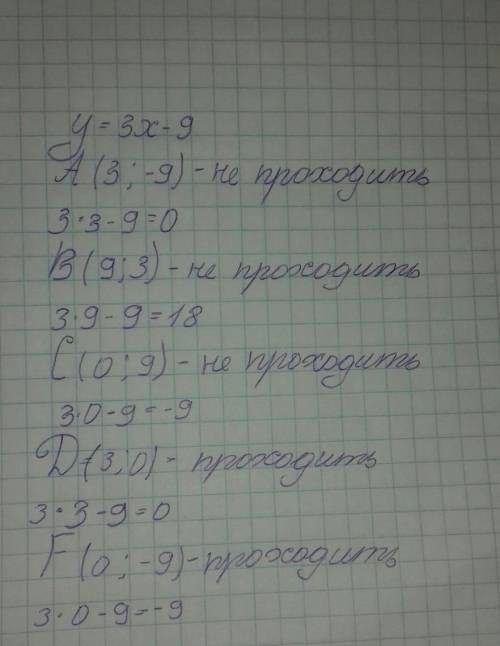 y = 3x - 9
A (3 ; -9) - не проходить
3·3 - 9 = 0
B (9 ; 3) - не проходить
3·9 - 9 = 18
C (0 ; 9) - не проходить
3·0 - 9 = -9
D (3 ; 0) - проходить
3·3 - 9 = 0
F (0 ; -9) - проходить
3·0 - 9 = -9